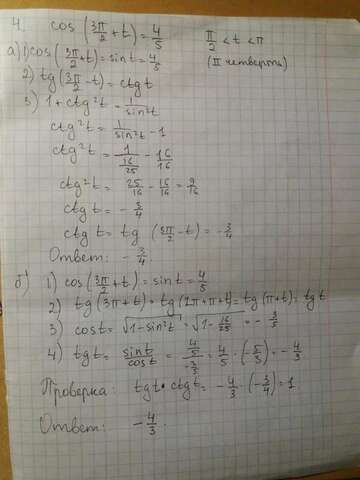 4. cos (3π/2 + t) = 4/5   π/2 < t < π
(II четверть)
а) 1) cos (3π/2 + t) = sin t = 4/5
2) tg (3π/2 - t) = ctg t
3) 1 + ctg²t = 1/sin²t
ctg²t = 1/sin²t - 1
ctg²t = 1/(16/25) - 16/16
ctg²t = 25/16 - 16/16 = 9/16
ctg t = - 3/4
ctg t = tg (3π/2 - t) = - 3/4
Ответ: - 3/4
б) 1) cos (3π/2 + t) = sin t = 4/5
2) tg (3π + t) = tg (2π + π + t) = tg (π + t) = tg t
3) cos t = √(1 - sin²t) = √(1 - 16/25) = - 3/5
4) tg t = sin t/cos t = (4/5)/(-3/5) = 4/5 · (- 5/3) = - 4/3
Проверка: tg t · ctg t = - 4/3 · (- 3/4) = 1.
Ответ: - 4/3.